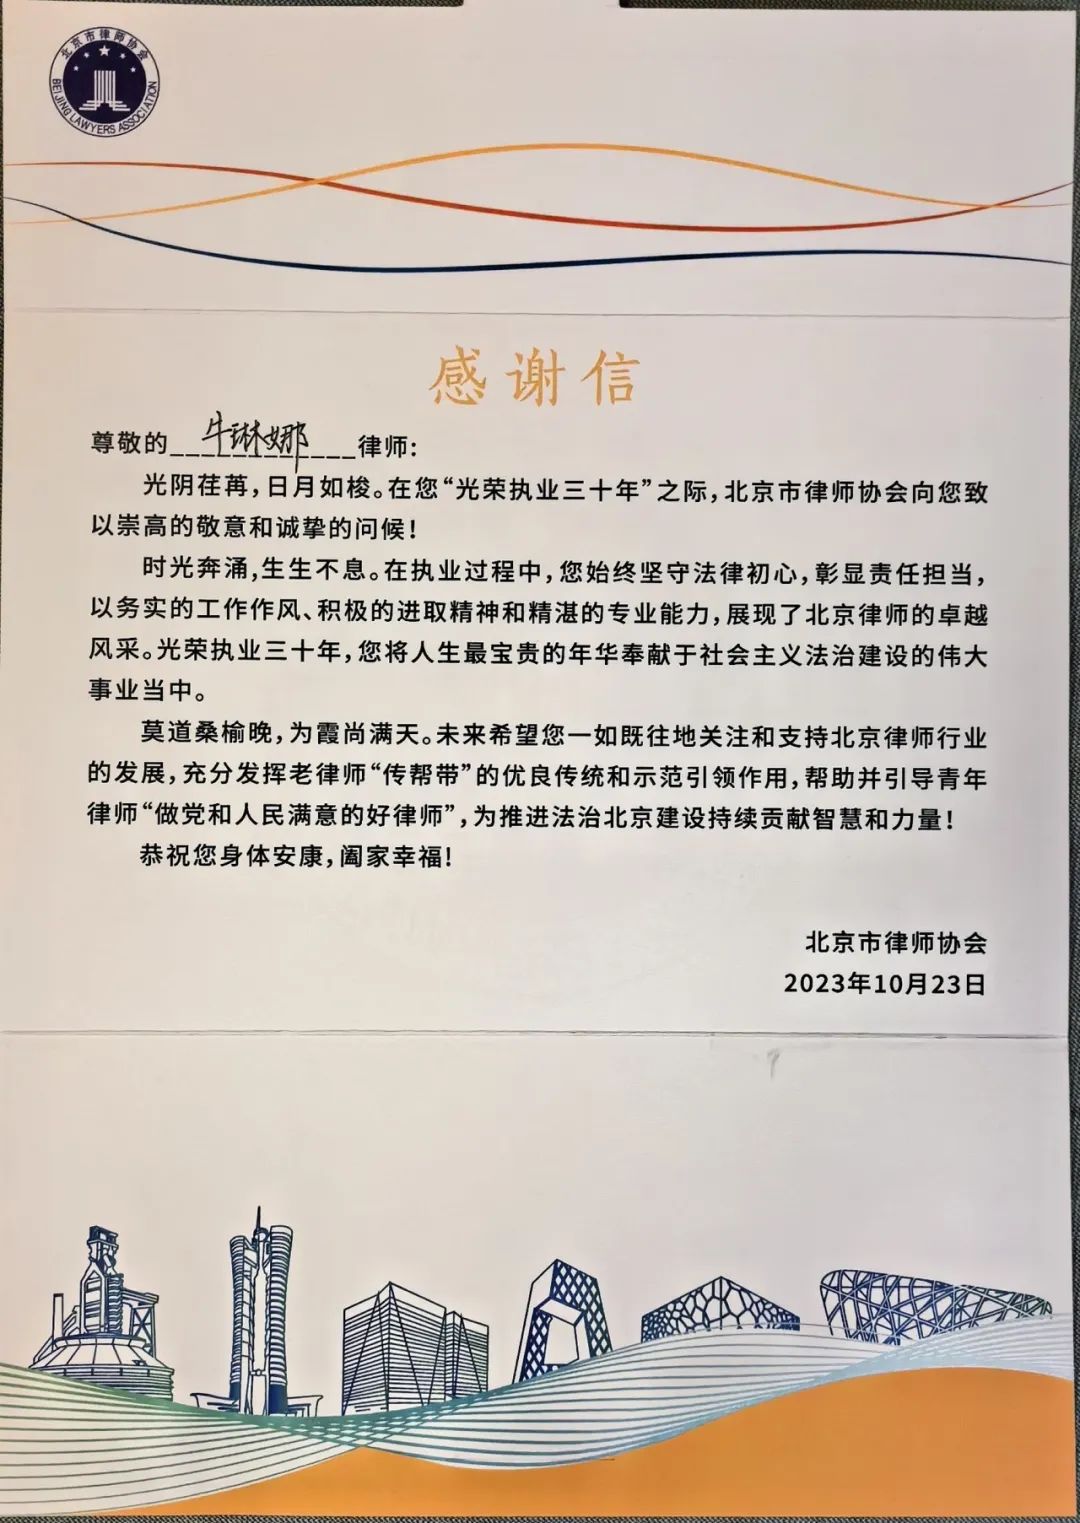 北京市律师协会
BEIJING LAWYERS ASSOCIATION
感谢信
尊敬的牛琳娜律师:
光阴荏苒,日月如梭。在您“光荣执业三十年”之际,北京市律师协会向您致
以崇高的敬意和诚挚的问候!
时光奔涌,生生不息。在执业过程中,您始终坚守法律初心,彰显责任担当,
以务实的工作作风、积极的进取精神和精湛的专业能力,展现了北京律师的卓越
风采。光荣执业三十年,您将人生最宝贵的年华奉献于社会主义法治建设的伟大
事业当中。
莫道桑榆晚,为霞尚满天。未来希望您一如既往地关注和支持北京律师行业
的发展,充分发挥老律师“传帮带”的优良传统和示范引领作用,帮助并引导青年
律师“做党和人民满意的好律师”,为推进法治北京建设持续贡献智慧和力量!
恭祝您身体安康,阖家幸福!
北京市律师协会
2023年10月23日